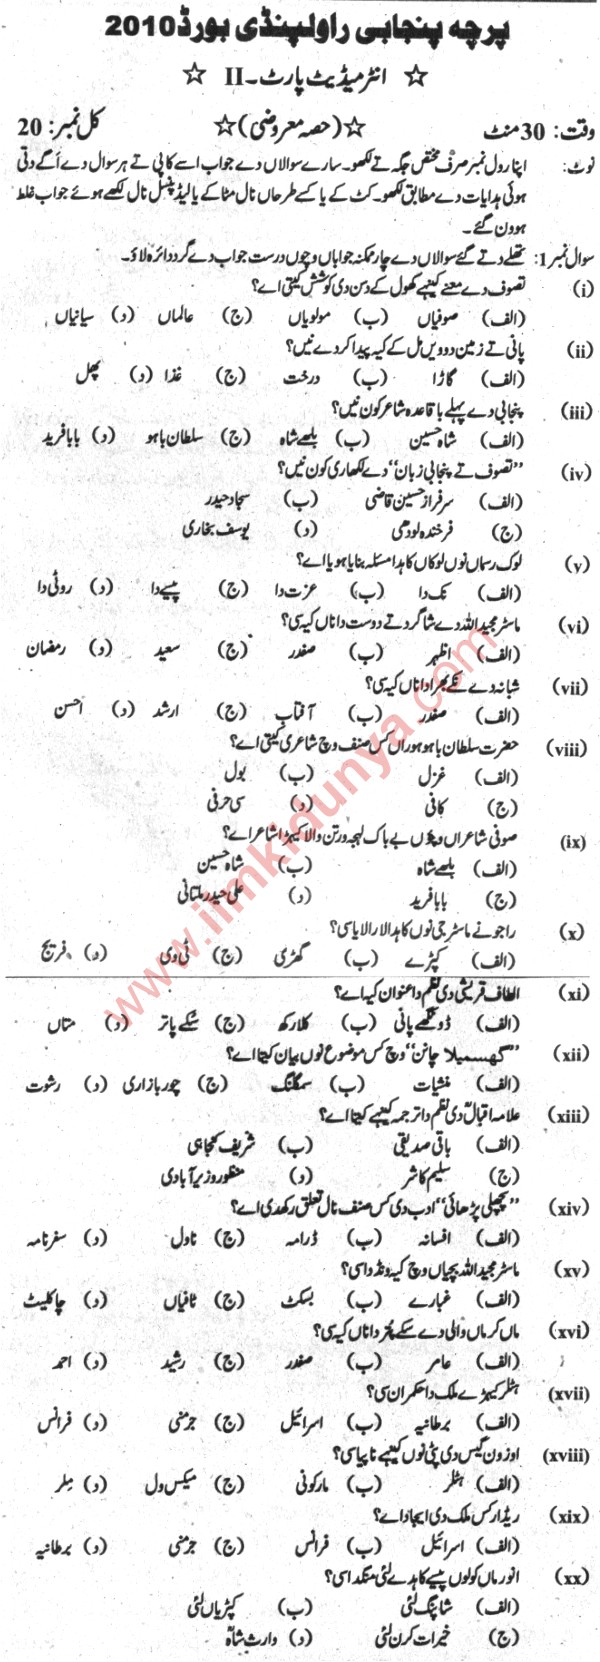 پرچہ پنجابی راولپنڈی بورڈ 2010
☆ انٹرمیڈیٹ پارٹ ۔ II ☆
وقت: 30 منٹ ☆(حصہ معروضی)☆ کل نمبر: 20
نوٹ: اپنا رول نمبر صرف مختص جگہ تے لکھو۔ سارے سوالاں دے جواب اسے کاپی تے ہر سوال دے اگے دتی
ہوئی ہدایات دے مطابق لکھو۔ کٹ کے یا کسے طرحاں نال مٹا کے یا لیڈ پنسل نال لکھے ہوئے جواب غلط
ہوون گے۔
سوال نمبر1: تھلے دتے گئے سوالاں دے چار ممکنہ جواباں وچوں درست جواب دے گرد دائرہ لاؤ۔
(i) تصوف دے معنے کیہنے کھول کے دسن دی کوشش کیتی اے؟
(الف) صوفیاں (ب) مولویاں (ج) عالماں (د) سیانیاں
(ii) پانی تے زمین دوویں مل کے کیہ پیدا کردے نیں؟
(الف) گاڑا (ب) درخت (ج) غذا (د) پھل
(iii) پنجابی دے پہلے باقاعدہ شاعر کون نیں؟
(الف) شاہ حسین (ب) بلھے شاہ (ج) سلطان باہو (د) بابا فرید
(iv) "تصوف تے پنجابی زبان" دے لکھاری کون نیں؟
(الف) سرفراز حسین قاضی (ب) سجاد حیدر
(ج) فرخندہ لودھی (د) یوسف بخاری
(v) لوک رسماں نوں لوکاں کاہدا مسئلہ بنایا ہویا اے؟
(الف) نک دا (ب) عزت دا (ج) پیسے دا (د) روٹی دا
(vi) ماسٹر مجید اللہ دے شاگرد تے دوست دا ناں کیہ سی؟
(الف) اظہر (ب) صفدر (ج) سعید (د) رمضان
(vii) شبانہ دے نکے بھرا دا ناں کیہ سی؟
(الف) صفدر (ب) آفتاب (ج) ارشد (د) احسن
(viii) حضرت سلطان باہو ہوراں کس صنف وچ شاعری کیتی اے؟
(الف) غزل (ب) بول
(ج) کافی (د) سی حرفی
(ix) صوفی شاعراں وچوں بے باک لہجہ ورتن والا کیہڑا شاعر اے؟
(الف) بلھے شاہ (ب) شاہ حسین
(ج) بابا فرید (د) علی حیدر ملتانی
(x) راجو نے ماسٹر جی نوں کاہدا لارا لایا سی؟
(الف) کپڑے (ب) گھڑی (ج) ٹی وی (د) فریج
(xi) الطاف قریشی دی نظم دا عنوان کیہ اے؟
(الف) ڈونگھے پانی (ب) کلا رکھ (ج) سکے پاتر (د) متاں
(xii) "گھسمیلا چانن" وچ کس موضوع نوں بیان کیتا اے؟
(الف) منشیات (ب) سمگلنگ (ج) چور بازاری (د) رشوت
(xiii) علامہ اقبالؒ دی نظم دا ترجمہ کیہنے کیتا اے؟
(الف) باقی صدیقی (ب) شریف کنجاہی
(ج) سلیم کاشر (د) منظور وزیرآبادی
(xiv) "پچھلی پڑھائی" ادب دی کس صنف نال تعلق رکھدی اے؟
(الف) افسانہ (ب) ڈرامہ (ج) ناول (د) سفرنامہ
(xv) ماسٹر مجید اللہ بچیاں وچ کیہ ونڈدا سی؟
(الف) غبارے (ب) بسکٹ (ج) ٹافیاں (د) چاکلیٹ
(xvi) ماں کرماں والی دے سکے پتر دا ناں کیہ سی؟
(الف) عامر (ب) صفدر (ج) رشید (د) احمد
(xvii) ہٹلر کیہڑے ملک دا حکمران سی؟
(الف) برطانیہ (ب) اسرائیل (ج) جرمنی (د) فرانس
(xviii) اوزون گیس دی پٹی نوں کیہنے ناپیا سی؟
(الف) ہٹلر (ب) مارکونی (ج) میکس ول (د) ملر
(xix) ریڈار کس ملک دی ایجاد اے؟
(الف) اسرائیل (ب) فرانس (ج) جرمنی (د) برطانیہ
(xx) انور ماں کولوں پیسے کاہدے لئی منگدا سی؟
(الف) شاپنگ لئی (ب) کپڑیاں لئی
(ج) خیرات کرن لئی (د) وارث شاہ
www.ilmkidunya.com